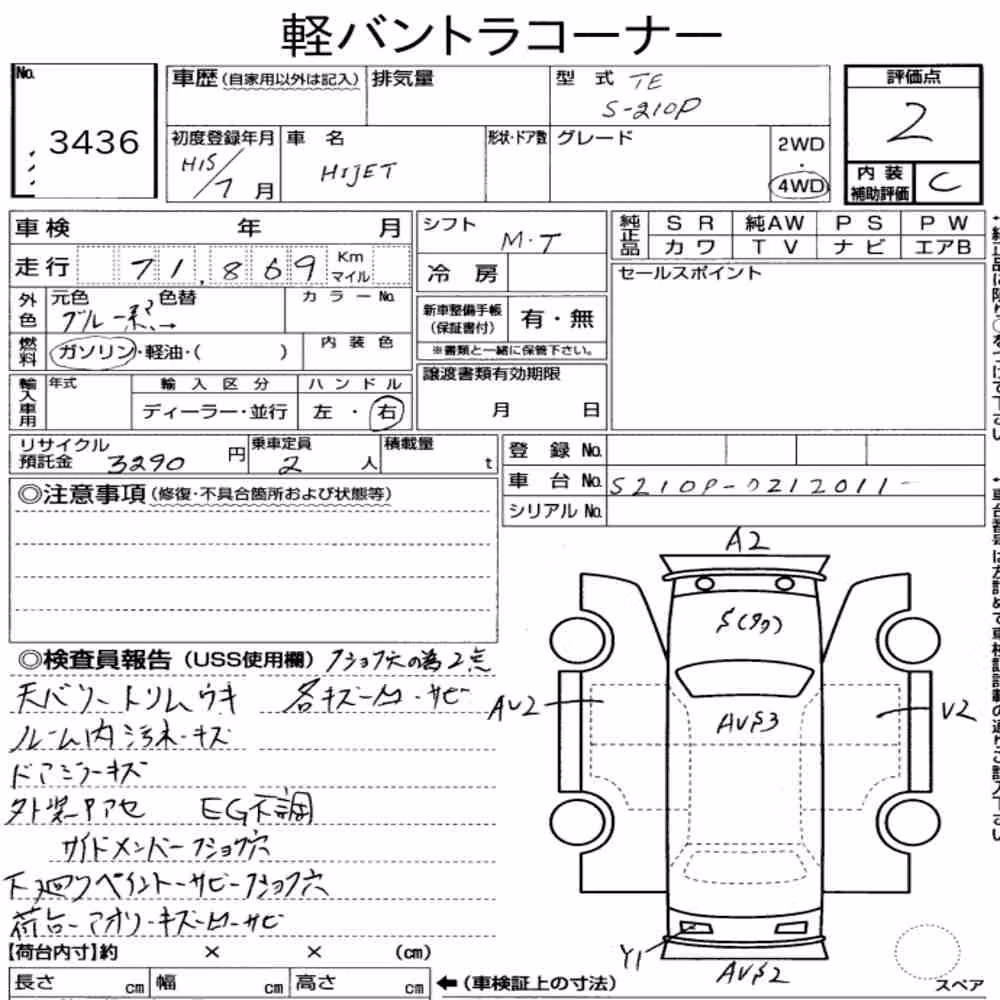 軽バントラコーナー
No. 3436
車歴 (自家用以外は記入)
排気量
型式 TE
S-210P
評価点
2
初度登録年月
H15/7月
車名
HIJET
形状・ドア数
グレード
2WD
・
4WD
内装
補助評価
C
車検 年 月
シフト
M・T
純正品
SR 純AW PS PW
カワ TV ナビ エアB
走行 71,869 Km
マイル
冷房
セールスポイント
外色
元色 色替
カラーNo.
ブルー系→
新車整備手帳
(保証書付)
有・無
※書類と一緒に保管下さい。
燃料
ガソリン・軽油・( )
内装色
輸入車用
年式
輸入区分
ハンドル
ディーラー・並行
左・右
譲渡書類有効期限
月 日
リサイクル
預託金 3290 円
乗車定員
2 人
積載量
t
登録No.
車台No. S210P-0212011-
シリアルNo.
◎注意事項 (修復・不具合箇所および状態等)
◎検査員報告 (USS使用欄) フショク穴の為2点
天バリートリムウキ 各キズー凹・サビ
ルーム内汚れ・キズ
ドアミラーキズ
外装アセ EG不調
サイドメンバーフショク穴
下廻りペイントーサビーフショク穴
荷台ーアオリ・キズー凹ーサビ
【荷台内寸】約 × × (cm)
長さ cm 幅 cm 高さ cm
←(車検証上の寸法)
A2
AV2
AVS3
V2
Y1
AVS2
スペア